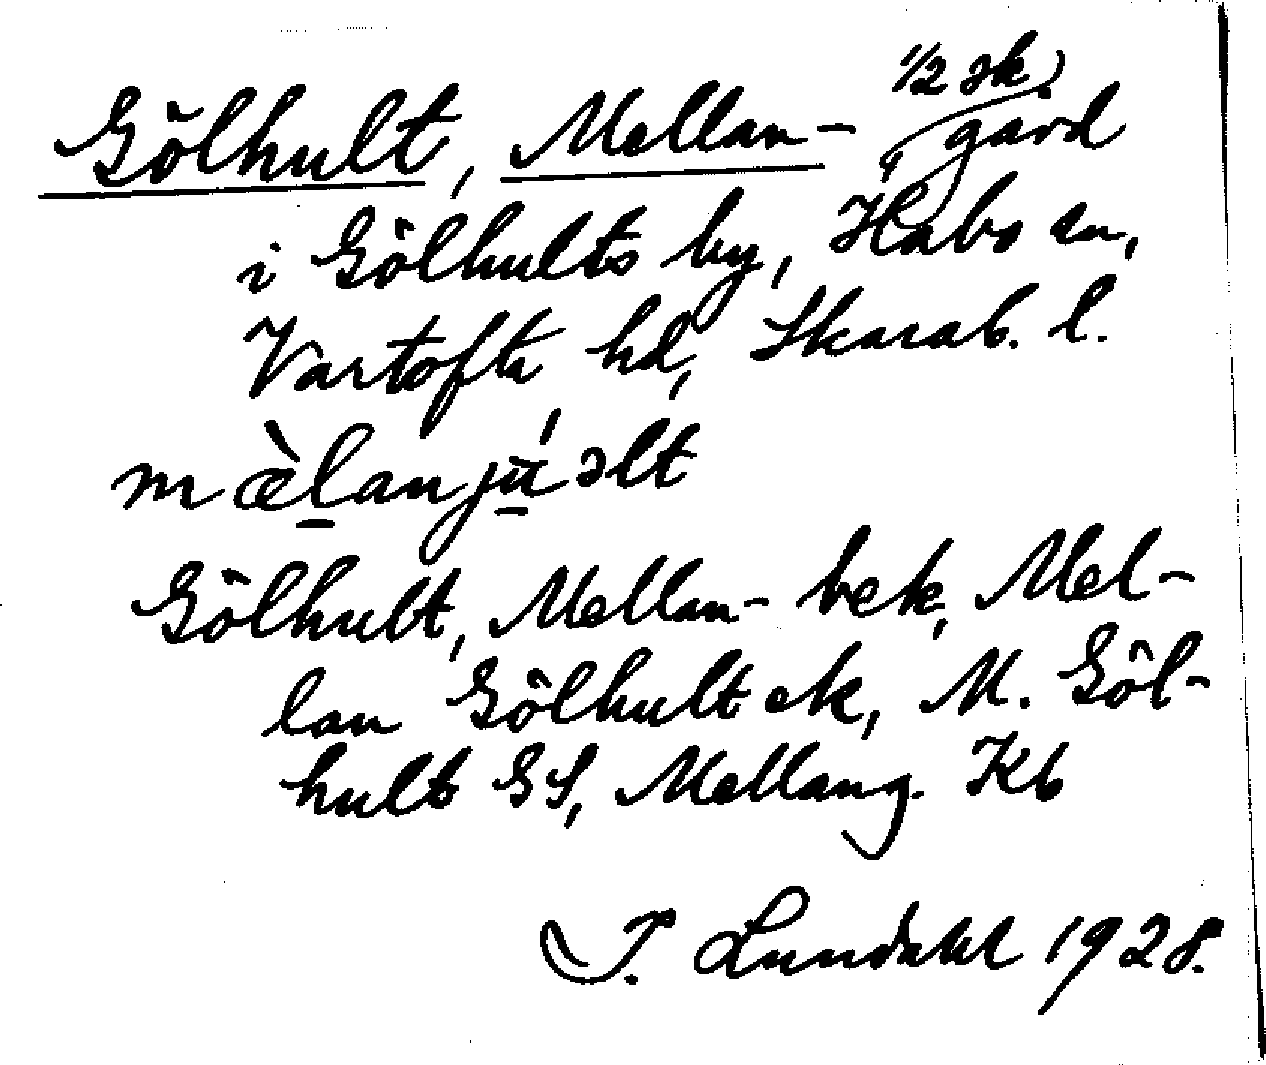 Gölhult, Mellan-, 1/2 sk. gård
i Gölhults by, Habo sn,
Vartofta hd, Skarab. l.
mæ̀lanjú̄əlt
Gölhult, Mellan- bek, Mel-
lan Gölhult ek, M. Göl-
hult GS, Mellang. Kb
I. Lundahl 1928.